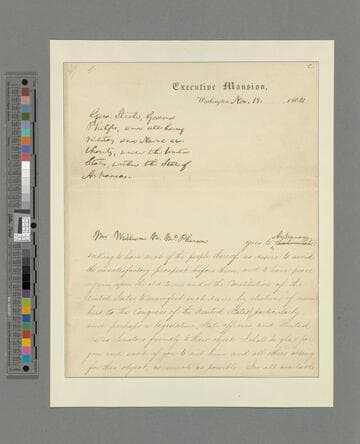 Executive Mansion,
Washington, Nov. 18. 1862
Gen. Steele, Govnr
Phelps, and all having
military and Naval au-
thority, under the United
States, within the State of
Arkansas.
Arkansas
Mr. William M. McPherson goes to
seeking to have such of the people thereof as desire to avoid
the unsatisfactory prospect before them, and to have peace
again upon the old terms under the Constitution of the
United States to manifest such desire by elections of mem
bers to the Congress of the United States particularly
and perhaps a legislature, State officers and United
States Senators friendly to their object. I shall be glad for
you and each of you, to aid him and all others acting
for this object, as much as possible. In all available